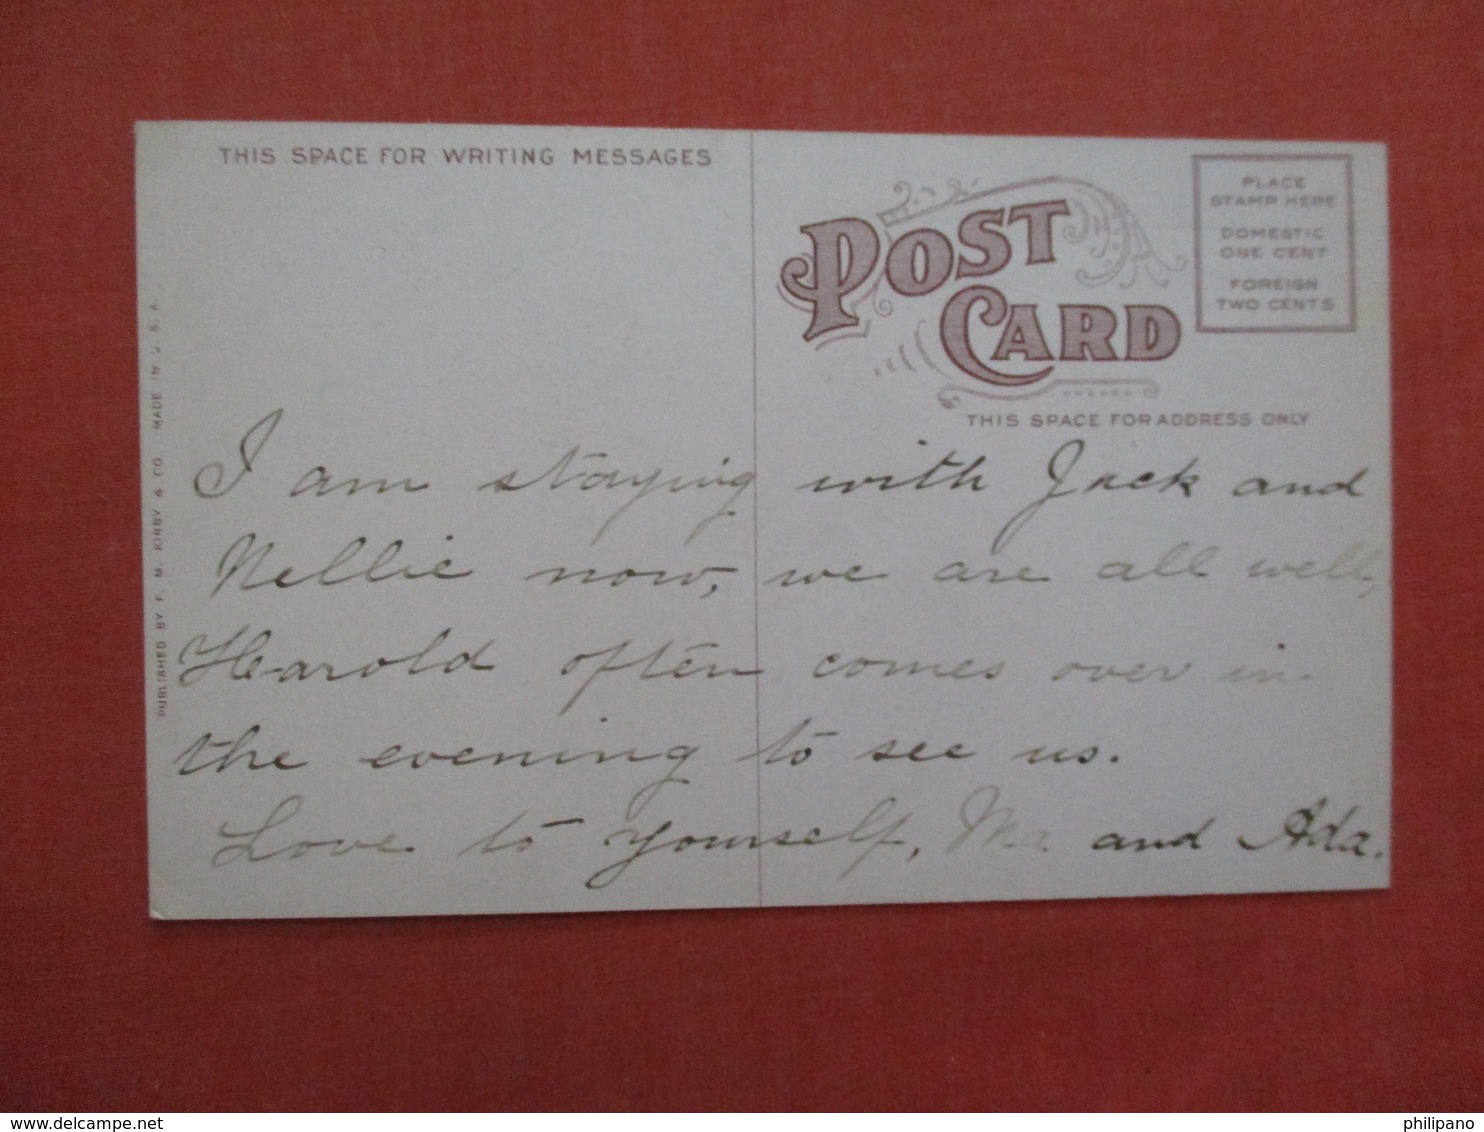 THIS SPACE FOR WRITING MESSAGES
POST
CARD
PLACE
STAMP HERE
DOMESTIC
ONE CENT
FOREIGN
TWO CENTS
THIS SPACE FOR ADDRESS ONLY
PUBLISHED BY F. M. KIRBY & CO. MADE IN U. S. A.
I am staying with Jack and
Nellie now, we are all well,
Harold often comes over in
the evening to see us.
Love to yourself, Ma and Ada.
www.delcampe.net
philipano